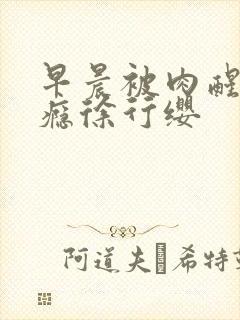 早晨被肉醒
瘾徐行缨
阿道夫·希特